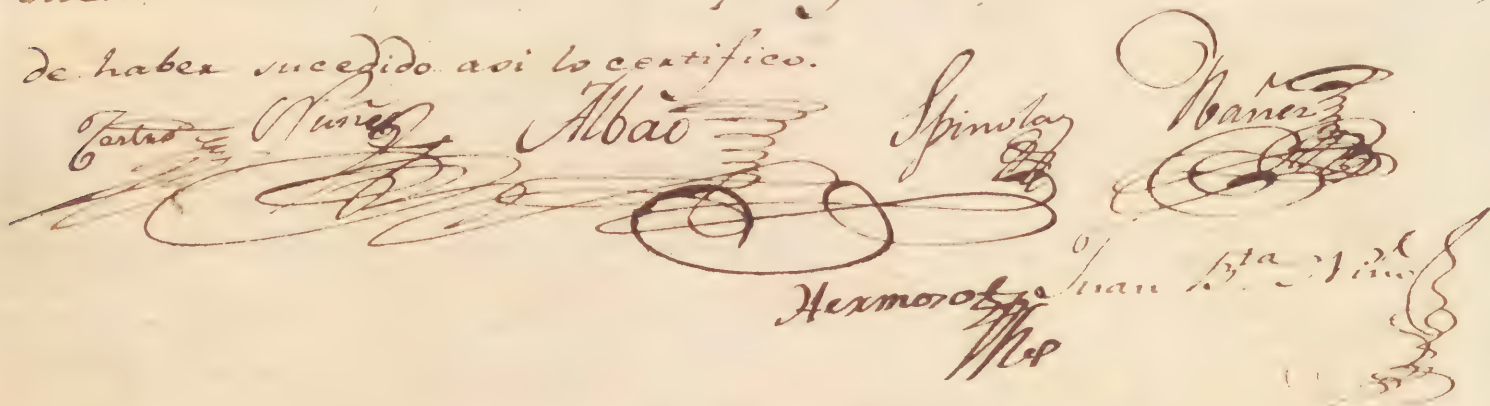 de haber sucedido asi lo certifico.
Nuñez Albaò Spinola Ibañez
Hermoso Juan B.ta